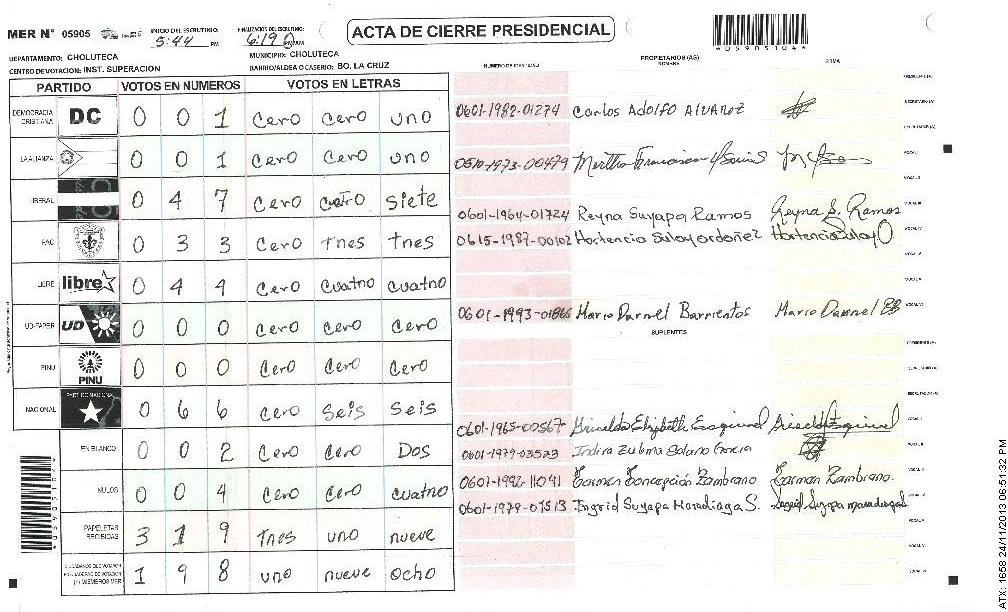 MER N° 05905 INICIO DEL ESCRUTINIO: 5:44 PM FINALIZACION DEL ESCRUTINIO: 6:19 PM/AM ACTA DE CIERRE PRESIDENCIAL
DEPARTAMENTO: CHOLUTECA MUNICIPIO: CHOLUTECA
CENTRO DE VOTACION: INST. SUPERACION BARRIO/ALDEA O CASERIO: BO. LA CRUZ
NUMERO DE IDENTIDAD PROPIETARIOS (AS) NOMBRE FIRMA
PARTIDO VOTOS EN NUMEROS VOTOS EN LETRAS
DEMOCRACIA CRISTIANA DC 0 0 1 cero cero uno
LA ALIANZA 0 0 1 cero cero uno
LIBERAL 0 4 7 cero cuatro siete
PAC 0 3 3 cero tres tres
LIBRE libre 0 4 4 cero cuatro cuatro
UD-FAPER UD 0 0 0 cero cero cero
PINU PINU 0 0 0 cero cero cero
NACIONAL PARTIDO NACIONAL 0 6 6 cero seis seis
EN BLANCO 0 0 2 cero cero Dos
NULOS 0 0 4 cero cero cuatro
PAPELETAS RECIBIDAS 3 1 9 tres uno nueve
(+) MIEMBROS MER 1 9 8 uno nueve ocho
0601-1982-01274 Carlos Adolfo Alvarez
0510-1973-00479
0601-1964-01724 Reyna Suyapa Ramos Reyna S. Ramos
0615-1987-00102 Hortencia Sulay ordoñez Hortencia Sulay O
0601-1993-01866 Mario Darnel Barrientos Mario Darnel BB
SUPLENTES
0601-1965-00567 Griselda Elizabeth Esquivel Griselda Esquivel
0601-1979-03523 Indira Zulema Solano Garcia
0601-1992-11091 Carmen Concepción Zambrano Carmen Zambrano
0601-1979-01513 Ingrid Suyapa Maradiaga S. Ingrid Suyapa maradiaga
4059051044
ATX: 1658 24/11/2013 06:51:32 PM